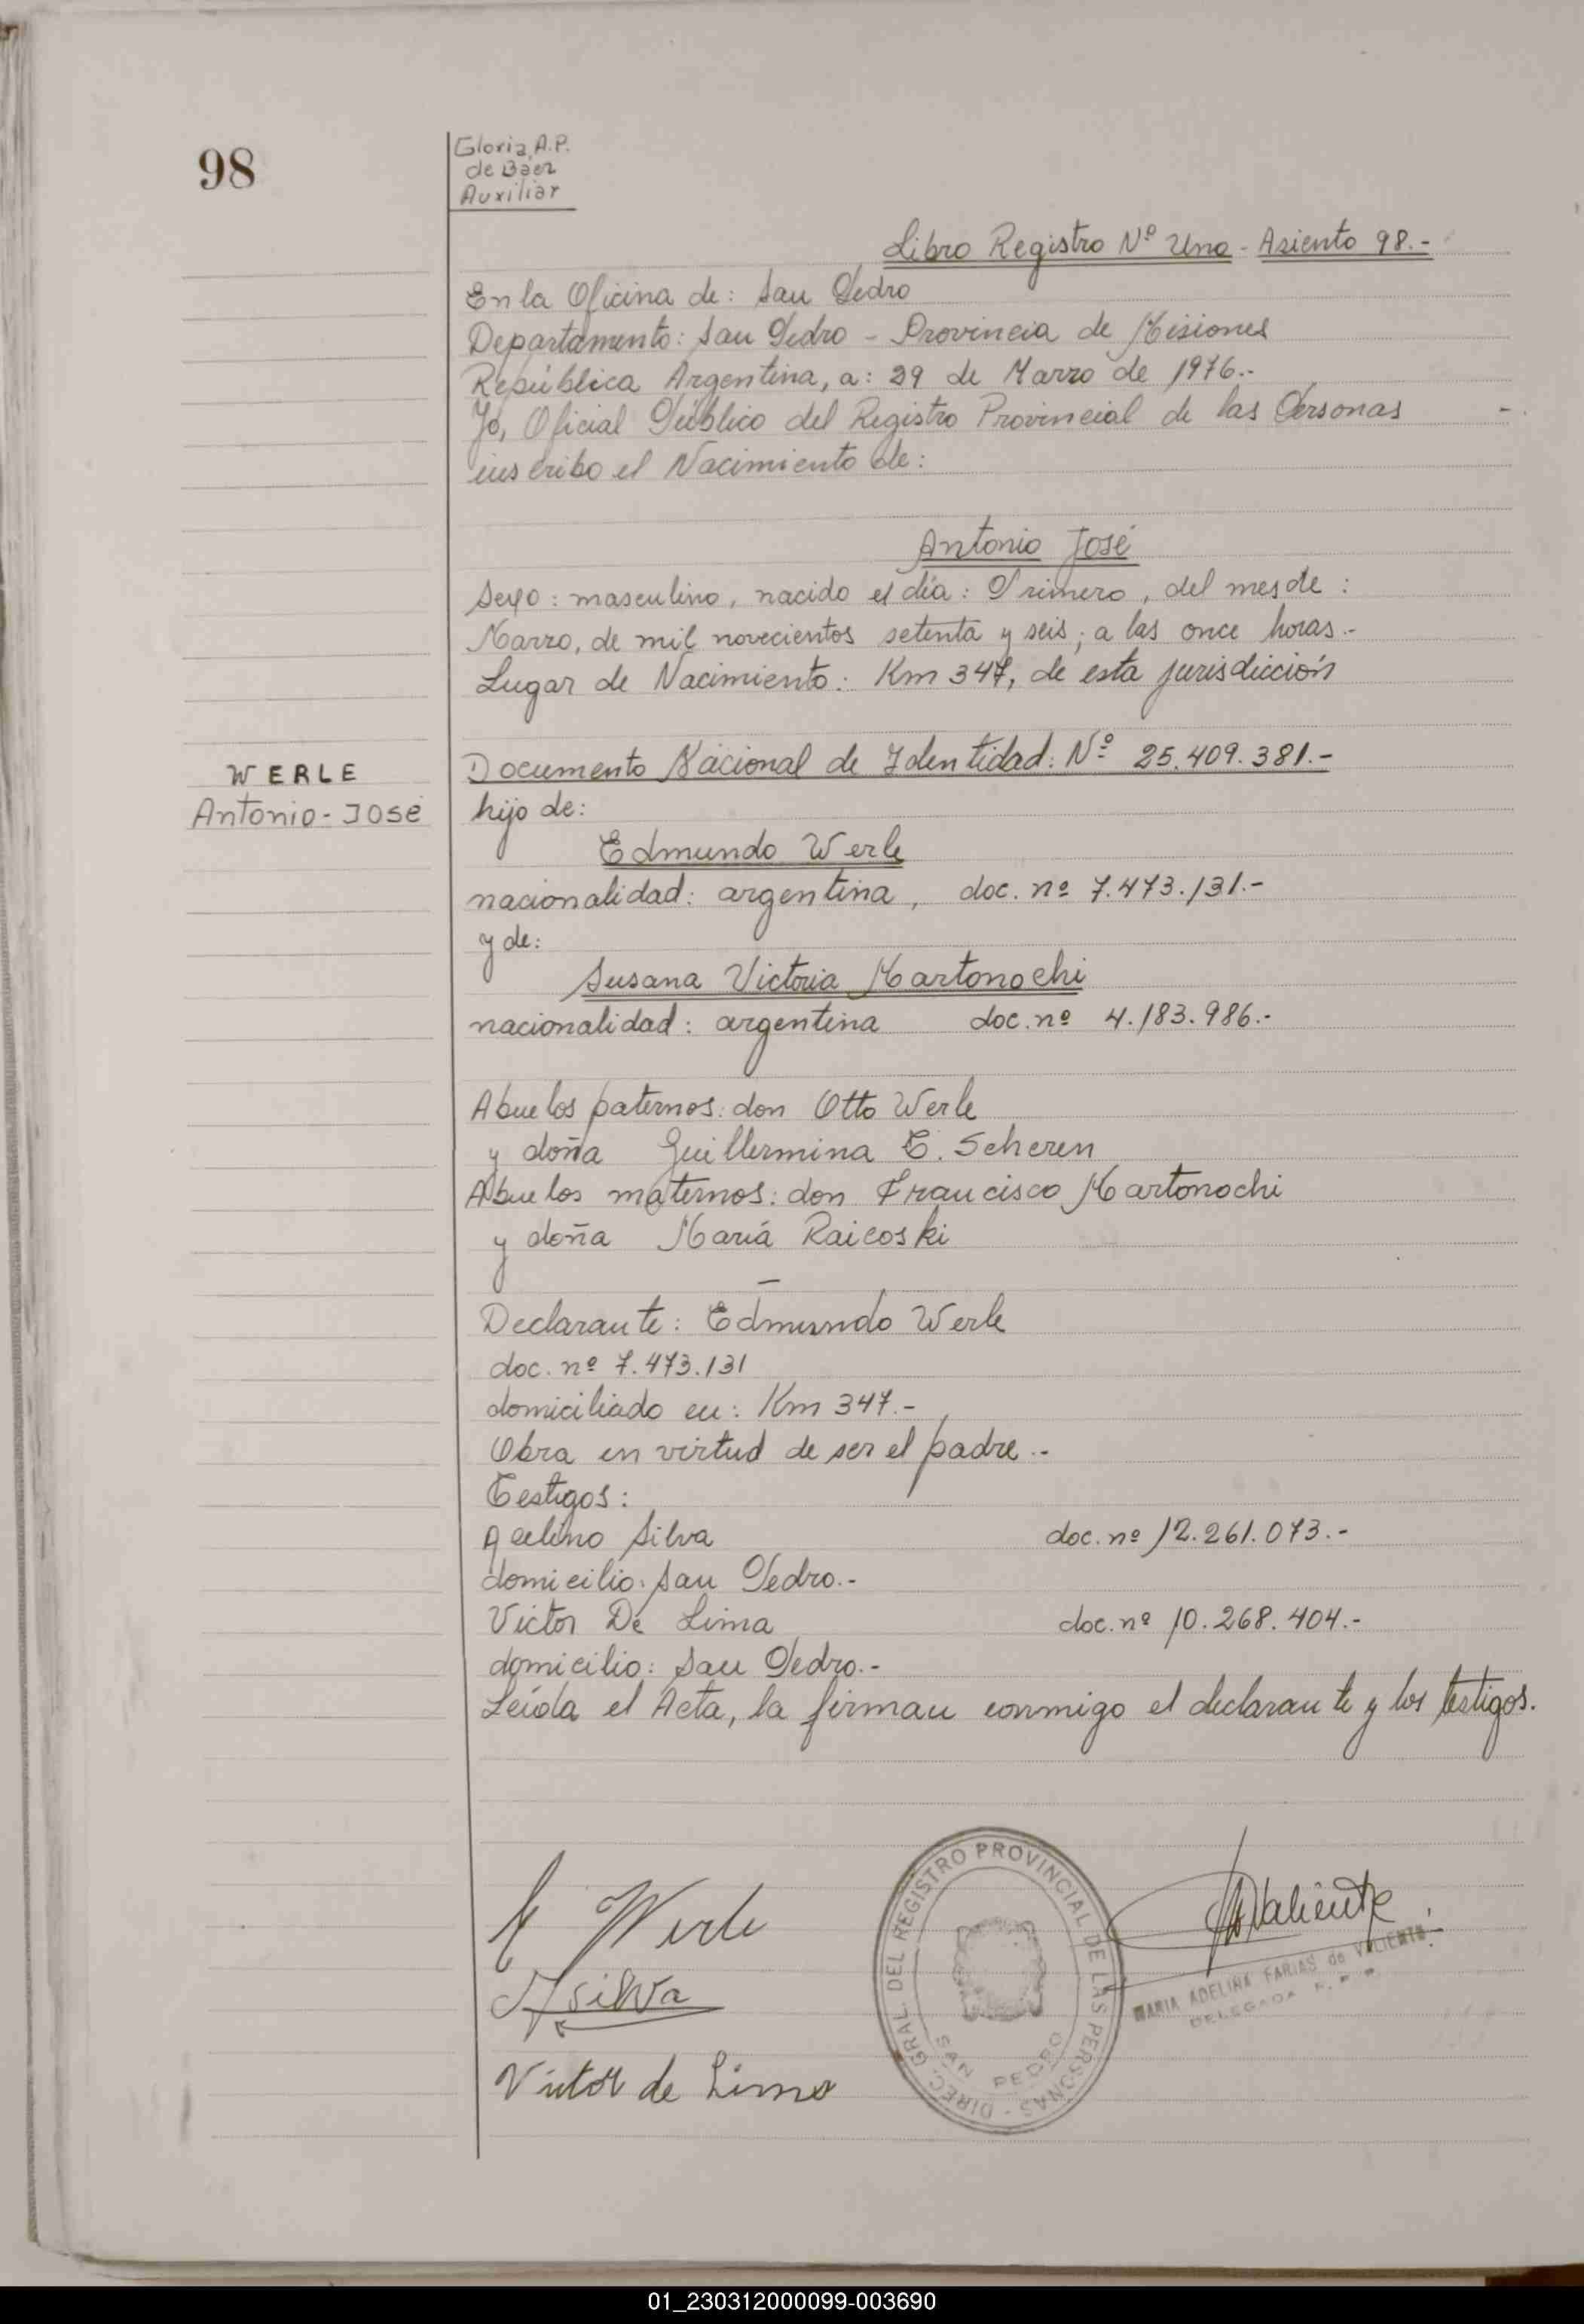 98
Gloria A.P.
de Báez
Auxiliar
Libro Registro Nº Uno - Asiento 98.-
En la Oficina de: San Pedro
Departamento: San Pedro - Provincia de Misiones
República Argentina, a: 29 de Marzo de 1976.-
Yo, Oficial Público del Registro Provincial de las Personas -
inscribo el Nacimiento de:
Antonio José
Sexo: masculino, nacido el día: Primero, del mes de:
Marzo, de mil novecientos setenta y seis; a las once horas.-
Lugar de Nacimiento: Km 347, de esta jurisdicción
Documento Nacional de Identidad: Nº 25.409.381.-
WERLE
Antonio-José
hijo de:
Edmundo Werle
nacionalidad: argentina, doc. nº 7.473.131.-
y de:
Susana Victoria Martonochi
nacionalidad: argentina doc. nº 4.183.986.-
Abuelos paternos: don Otto Werle
y doña Guillermina E. Scheren
Abuelos maternos: don Francisco Martonochi
y doña María Raicoski
Declarante: Edmundo Werle
doc. nº 7.473.131
domiciliado en: Km 347.-
Obra en virtud de ser el padre.-
Testigos:
Acelino Silva doc. nº 12.261.073.-
domicilio: San Pedro.-
Victor De Lima doc. nº 10.268.404.-
domicilio: San Pedro.-
Leída el Acta, la firman conmigo el declarante y los testigos.
E Werle
A silva
Victor de Lima
DIREC. GRAL. DEL REGISTRO PROVINCIAL DE LAS PERSONAS -
SAN PEDRO
Valiente
MARIA ADELINA FARIAS de VALIENTE
DELEGADA R. P. P.
01_230312000099-003690